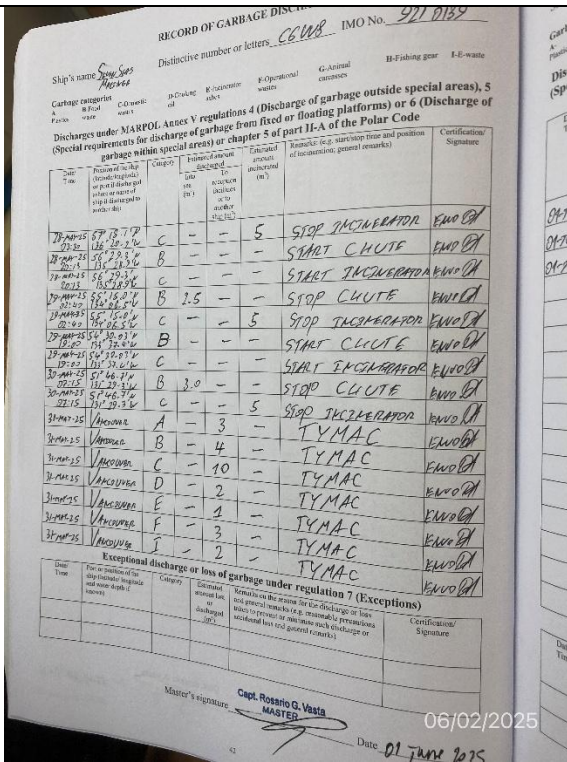 RECORD OF GARBAGE DISCH
Ship's name Seven Seas Distinctive number or letters C6WW8 IMO No. 9210139
Garbage categories
A- Plastics B-Food waste C-Domestic wastes D-Cooking oil E-Incinerator ashes F-Operational wastes G-Animal carcasses H-Fishing gear I-E-waste
Discharges under MARPOL Annex V regulations 4 (Discharge of garbage outside special areas), 5
(Special requirements for discharge of garbage from fixed or floating platforms) or 6 (Discharge of
garbage within special areas) or chapter 5 of part II-A of the Polar Code
Date/ Time Position of the ship (latitude/longitude) or port if discharged ashore or name of ship if discharged to another ship Category Estimated amount discharged Into sea (m³) To reception facilities or to another ship (m³) Estimated amount incinerated (m³) Remarks: (e.g. start/stop time and position of incineration; general remarks) Certification/ Signature
28-MAY-25 C - - 5 STOP INCINERATOR ENVO
28-MAY-25 20:13 56° 29.3'N 135° 28.9'W B - - - START CHUTE ENVO
28-MAY-25 20:13 56° 29.3'N 135° 28.9'W C - - - START INCINERATOR ENVO
29-MAY-25 02:40 55° 15.0'N 134° 06.5'W B 2.5 - - STOP CHUTE ENVO
29-MAY-25 02:40 55° 15.0'N 134° 06.5'W C - - 5 STOP INCINERATOR ENVO
29-MAY-25 19:00 B - - - START CHUTE ENVO
29-MAY-25 19:00 C - - - START INCINERATOR ENVO
30-MAY-25 07:15 51° 46.7'N B 3.0 - - STOP CHUTE ENVO
30-MAY-25 07:15 51° 46.7'N C - - 5 STOP INCINERATOR ENVO
31-MAY-25 VANCOUVER A - 3 - TYMAC ENVO
31-MAY-25 VANCOUVER B - 4 - TYMAC ENVO
31-MAY-25 VANCOUVER C - 10 - TYMAC ENVO
31-MAY-25 VANCOUVER D - 2 - TYMAC ENVO
31-MAY-25 VANCOUVER E - 1 - TYMAC ENVO
31-MAY-25 VANCOUVER F - 3 - TYMAC ENVO
31-MAY-25 VANCOUVER I - 2 - TYMAC ENVO
Exceptional discharge or loss of garbage under regulation 7 (Exceptions)
Date/ Time Port or position of the ship (latitude/ longitude and water depth if known) Category Estimated amount lost or discharged (m³) Remarks on the reason for the discharge or loss and general remarks (e.g. reasonable precautions taken to prevent or minimize such discharge or accidental loss and general remarks) Certification/ Signature
Master's signature Capt. Rosario G. Vasta
MASTER
Date 01 June 2025
06/02/2025